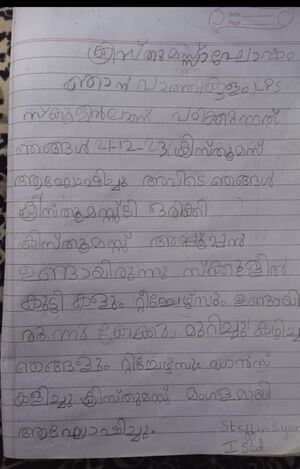 ക്രിസ്തുമസ്സാഘോഷം
ഞാൻ LPS
സ്കൂളിലാണ് പഠിക്കുന്നത്
ഞങ്ങൾ 21-12-23 ക്രിസ്തുമസ്
ആഘോഷിച്ചു അവിടെ ഞങ്ങൾ
ക്രിസ്തുമസ്സ്ട്രി ഒരിക്കി
ക്രിസ്തുമസ്സ് അപ്പൂപ്പൻ
ഉണ്ടായിരുന്നു സ്ക്കൂളിൽ
കുട്ടി കളും റ്റീച്ചേഴ്സും ഉണ്ടായി
രുന്നു കേക്കു മുറിച്ചു കഴിച്ചു
ഞങ്ങളും റ്റിച്ചേഴ്സും ഡാൻസ്
കളിച്ചു ക്രിസ്തുമസ്സ് മംഗളമായി
ആഘോഷിച്ചു.
I Std